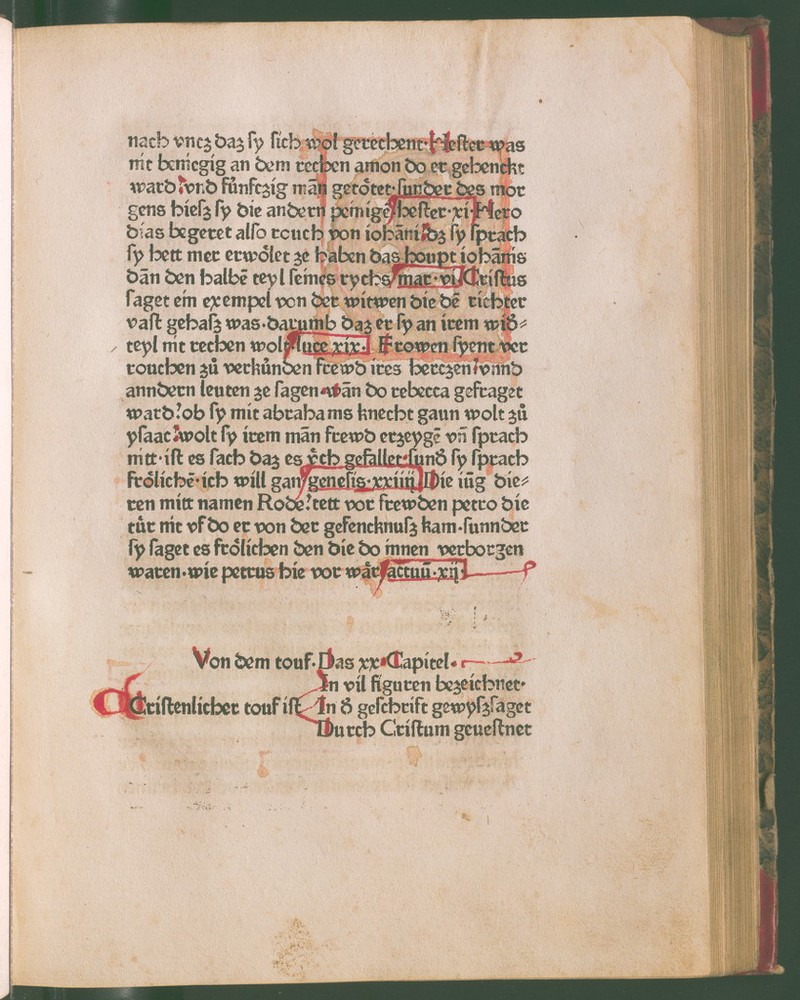 nach vncz daz sy sich wol gerechent·Hester was
nit benuegig an dem rechen amon do er gehenckt
ward/vnd fünftzig mān getötet·sunder des mor
gens hiesz sy die andern peinigē/hester·xi·Hero
dias begeret also rouch von iohāni/dz sy sprach
sy hett mer erwölet ze haben das houpt iohānis
dān den halbē teyl seines rychs/mar·vi·Cristus
saget ein exempel von der witwen die dē richter
vast gehasz was·darumb daz er sy an irem wiđ⸗
teyl nit rechen wolt/luce xix· Frowen syent ver
rouchen zů verkünden frewd ires herczen/vnnd
anndern leuten ze sagen·wān do rebecca gefraget
ward/ob sy mit abrahams knecht gaun wolt zů
ysaac/wolt sy irem mān frewd erzeygē vn̄ sprach
nitt·ist es sach daz es v̄ch gefallet·sunđ sy sprach
frölichē·ich will gan/genesis·xxiiij·Die iūg die⸗
ren mitt namen Rode/tett vor frewden petro die
tür nit vf do er von der gefencknusz kam·sunnder
sy saget es frölichen den die do innen verborgen
waren·wie petrus hie vor wär/actuū·xij·
Von dem touf·Das xx·Capitel·
In vil figuren bezeichnet·
Cristenlicher touf ist In đ geschrift gewyszsaget
Durch Cristum geuestnet